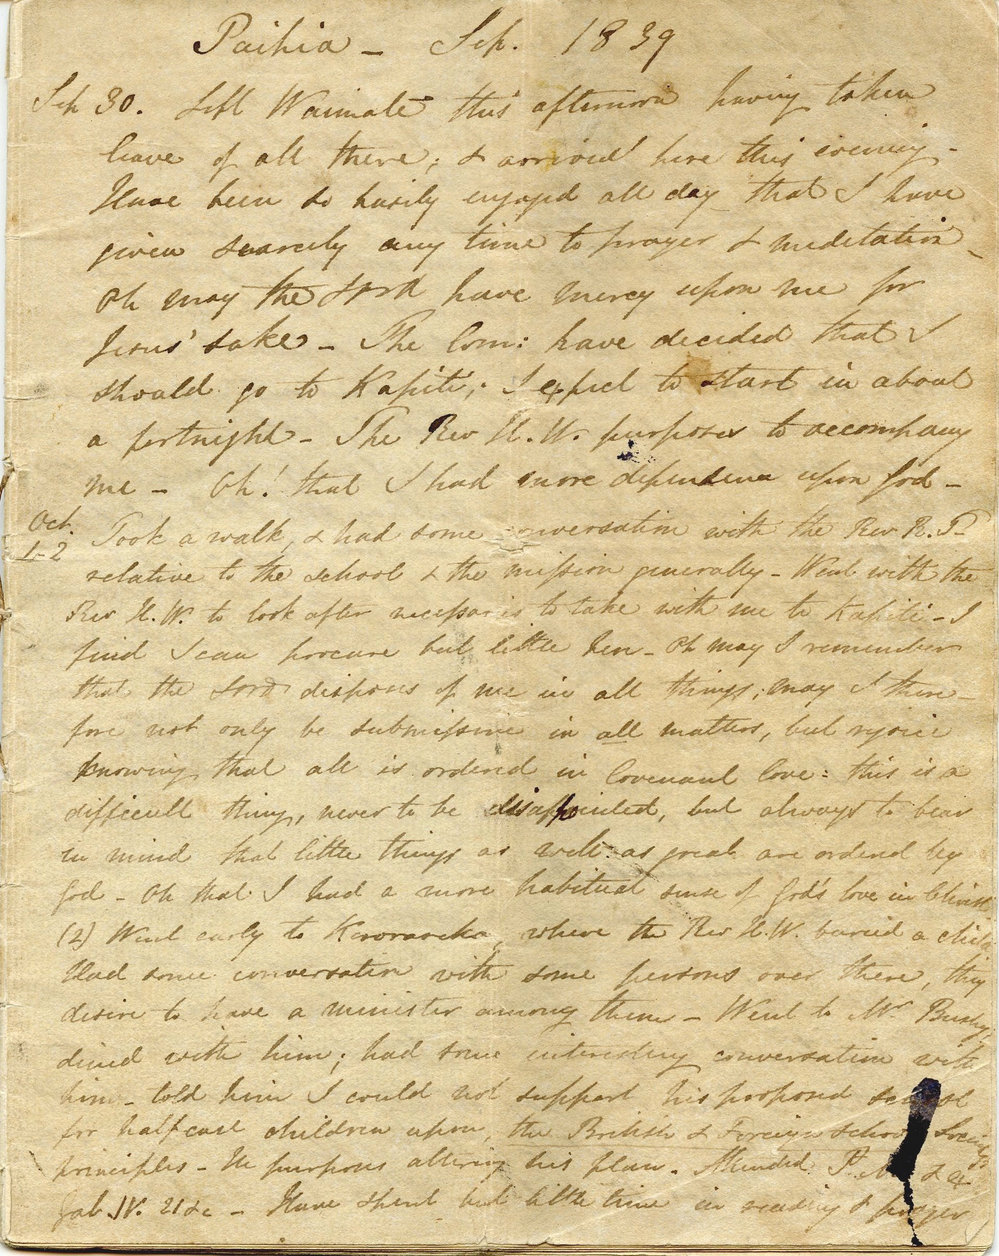 Paihia – Sep. 1839
Sep 30. Left Waimate this afternoon having taken
leave of all there; & arrived here this evening –
Have been so busily engaged all day that I have
given scarcely any time to prayer & meditation –
Oh may the Lord have mercy upon me for
Jesus' sake – The Com: have decided that I
should go to Kapiti; I expect to start in about
a fortnight – The Rev H. W. purposes to accompany
me – Oh! that I had more dependence upon God –
Oct.
1-2 Took a walk, & had some conversation with the Rev R. T–
relative to the school & the mission generally – Went with the
Rev H. W. to look after necessaries to take with me to Kapiti – I
find I can procure but little here – Oh may I remember
that the Lord disposes of me in all things; may I there-
fore not only be submissive in all matters, but rejoice
knowing that all is ordered in Covenant love: this is a
difficult thing, never to be disappointed, but always to bear
in mind that little things as well as great are ordered by
God – Oh that I had a more habitual sense of God's love in Christ
(2) Went early to Kororareka, where the Rev H. W. buried a child
Had some conversation with some persons over there, they
desire to have a minister among them – Went to Mr Busby,
dined with him; had some interesting conversation with
him – told him I could not support his proposed school
for halfcast children upon, the British & Foreign School Society's
principles – He purposes altering his plan. Attended &
Gal. IV. 21 &c – Have spent but little time in reading & prayer